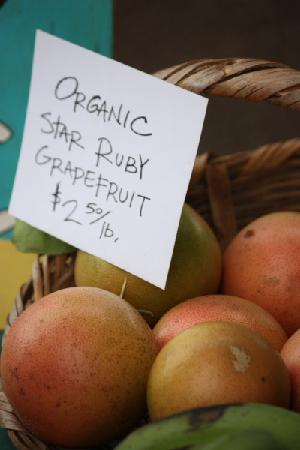 ORGANIC
STAR RUBY
GRAPEFRUIT
$2.50/lb.